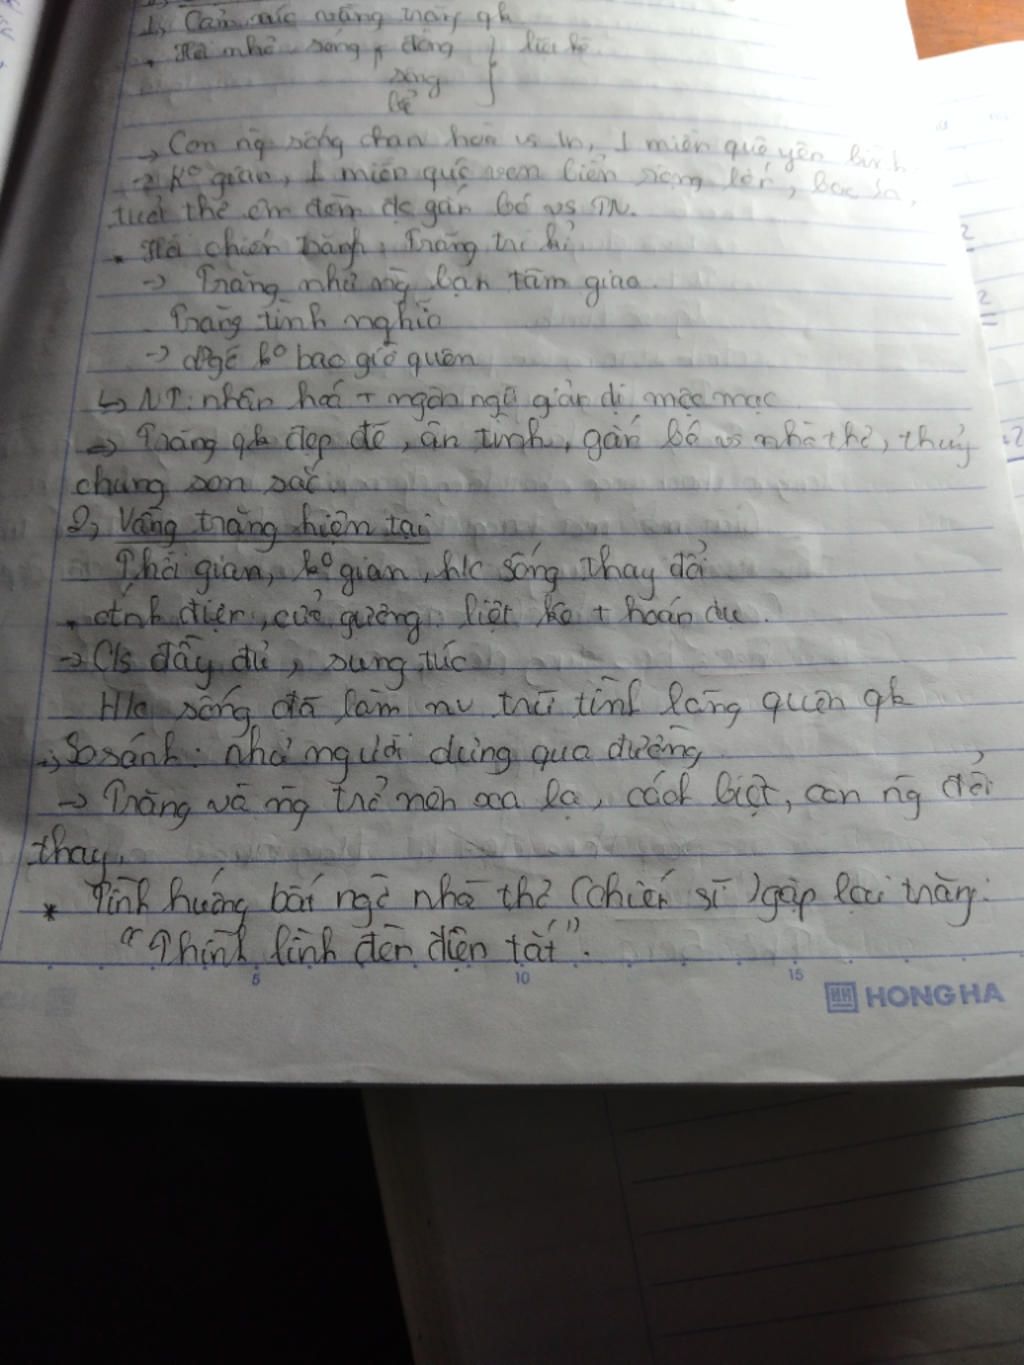 1, Cảm xúc vầng trăng qk
. Hồi nhỏ sống, đồng } liệt kê
sông
bể
→ Con ng sống chan hoà vs tn, 1 miền quê yên bình
→ ko gian, 1 miền quê ven biển rộng lớn,
tuổi thơ êm đềm đc gắn bó vs TN.
. Hồi chiến tranh: Trăng tri kỉ
→ Trăng như ng bạn tâm giao.
Trăng tình nghĩa
→ Ngỡ ko bao giờ quên
↳ NT: nhân hoá + ngôn ngữ giản dị mộc mạc
=> Trăng qk đẹp đẽ, ân tình, gắn bó vs nhà thơ, thuỷ
chung son sắc
2, Vầng trăng hiện tại
Thời gian, ko gian, h/c sống thay đổi
. ánh điện, cửa gương: liệt kê + hoán dụ.
→ C/s đầy đủ, sung túc
H/c sống đã làm nv trữ tình lãng quên qk
→ So sánh: như người dưng qua đường
→ Trăng và ng trở nên xa lạ, cách biệt, con ng đổi
thay.
* Tình huống bất ngờ nhà thơ (chiến sĩ) gặp lại trăng:
"Thình lình đèn điện tắt".
5 10 15
HH HONG HA
2
2
2